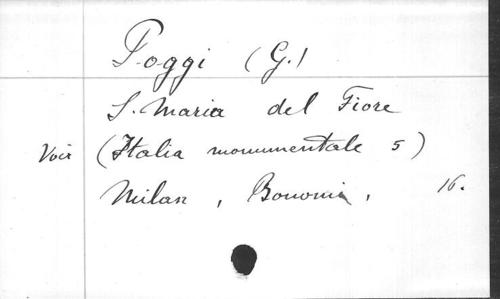 Poggi (G.)
S. Maria del Fiore
Voir (Italia monumentale 5)
Milan, Bonomi, 16.